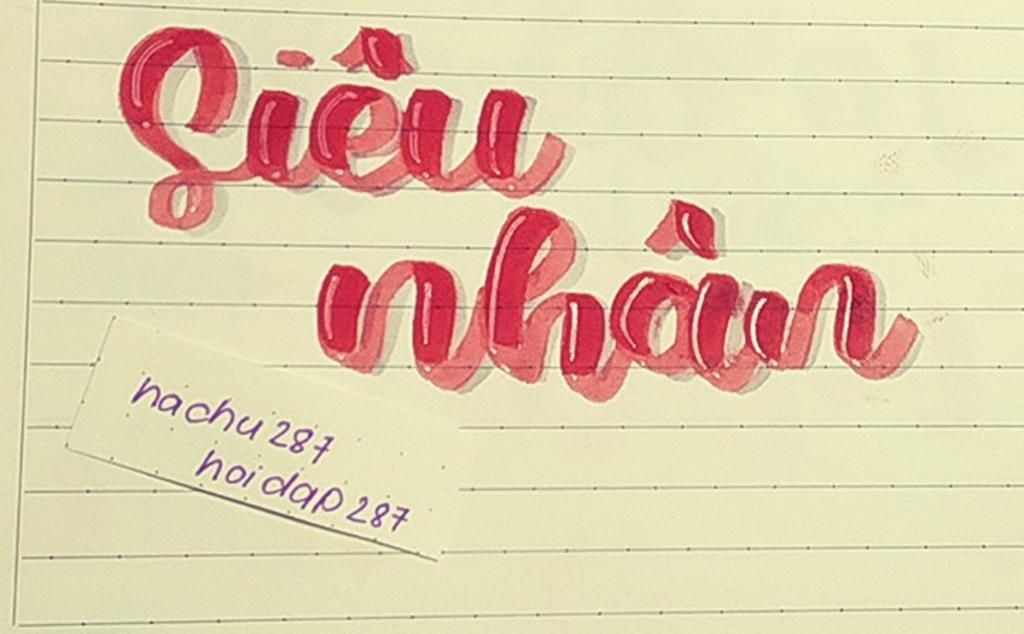 Siêu
nhân
nachu287
hoidap287